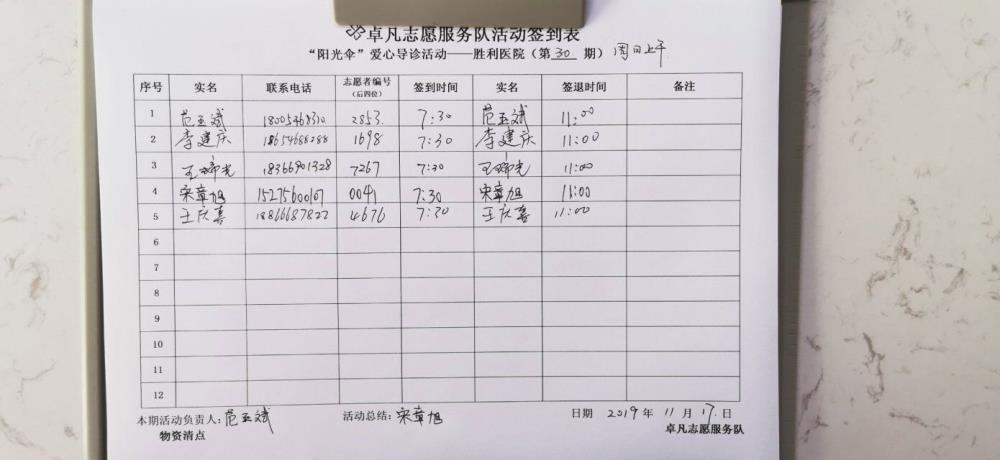 卓凡志愿服务队活动签到表
“阳光伞”爱心导诊活动——胜利医院（第 30 期）周日上午
序号 实名 联系电话 志愿者编号（后四位） 签到时间 实名 签退时间 备注
1 范玉斌 18005468310 2853 7:30 范玉斌 11:00
2 李建庆 18654688288 1698 7:30 李建庆 11:00
3 王 光 18366901328 7267 7:30 王 光 11:00
4 宋章旭 15275600107 0041 7:30 宋章旭 11:00
5 王庆喜 18866687822 4676 7:30 王庆喜 11:00
6
7
8
9
10
11
12
本期活动负责人：范玉斌 活动总结：宋章旭 日期 2019 年 11 月 17 日
物资清点 卓凡志愿服务队